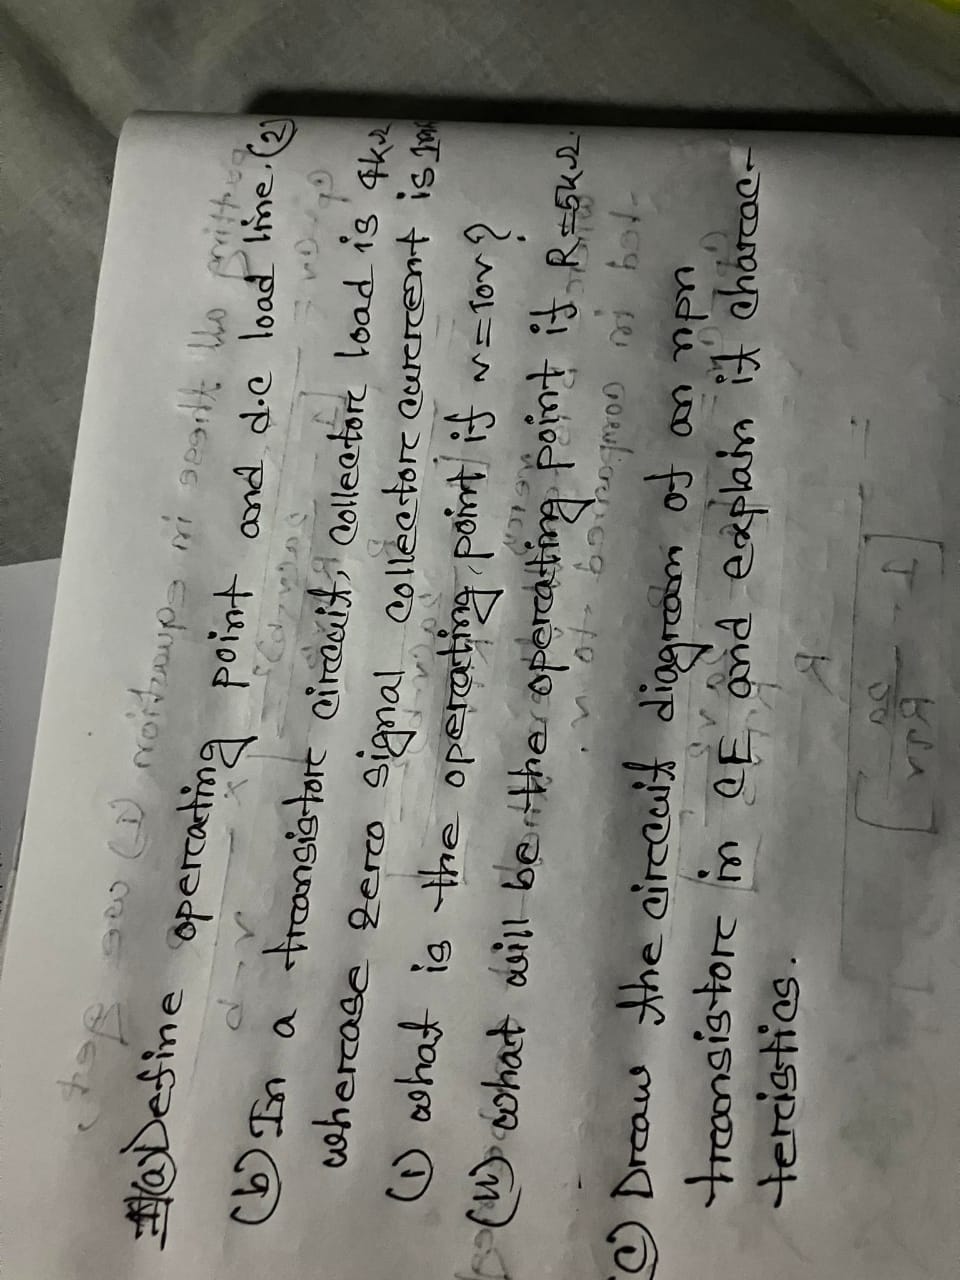 (a) Define opercating point and d.c load line. (2)
(b) In a trcansistorc circcuit, collectorc load is 4kΩ
whercase zerco signal collectorc curcrcent is 1mA
(i) what is the opercating point if v = 10v?
(ii) what will be the opercating point if R = 5kΩ.
(c) Drcaw the circcuit diagrcam of an npn
trcansistorc in CE and explain it charcac-
tercistics.